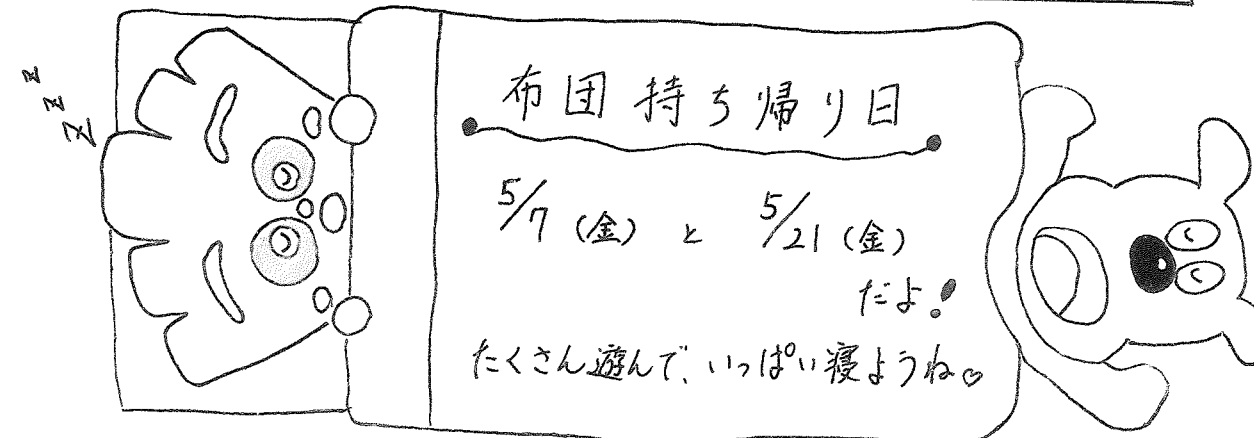 zzz
布団持ち帰り日
5/7（金）と 5/21（金）
だよ！
たくさん遊んで、いっぱい寝ようね♡